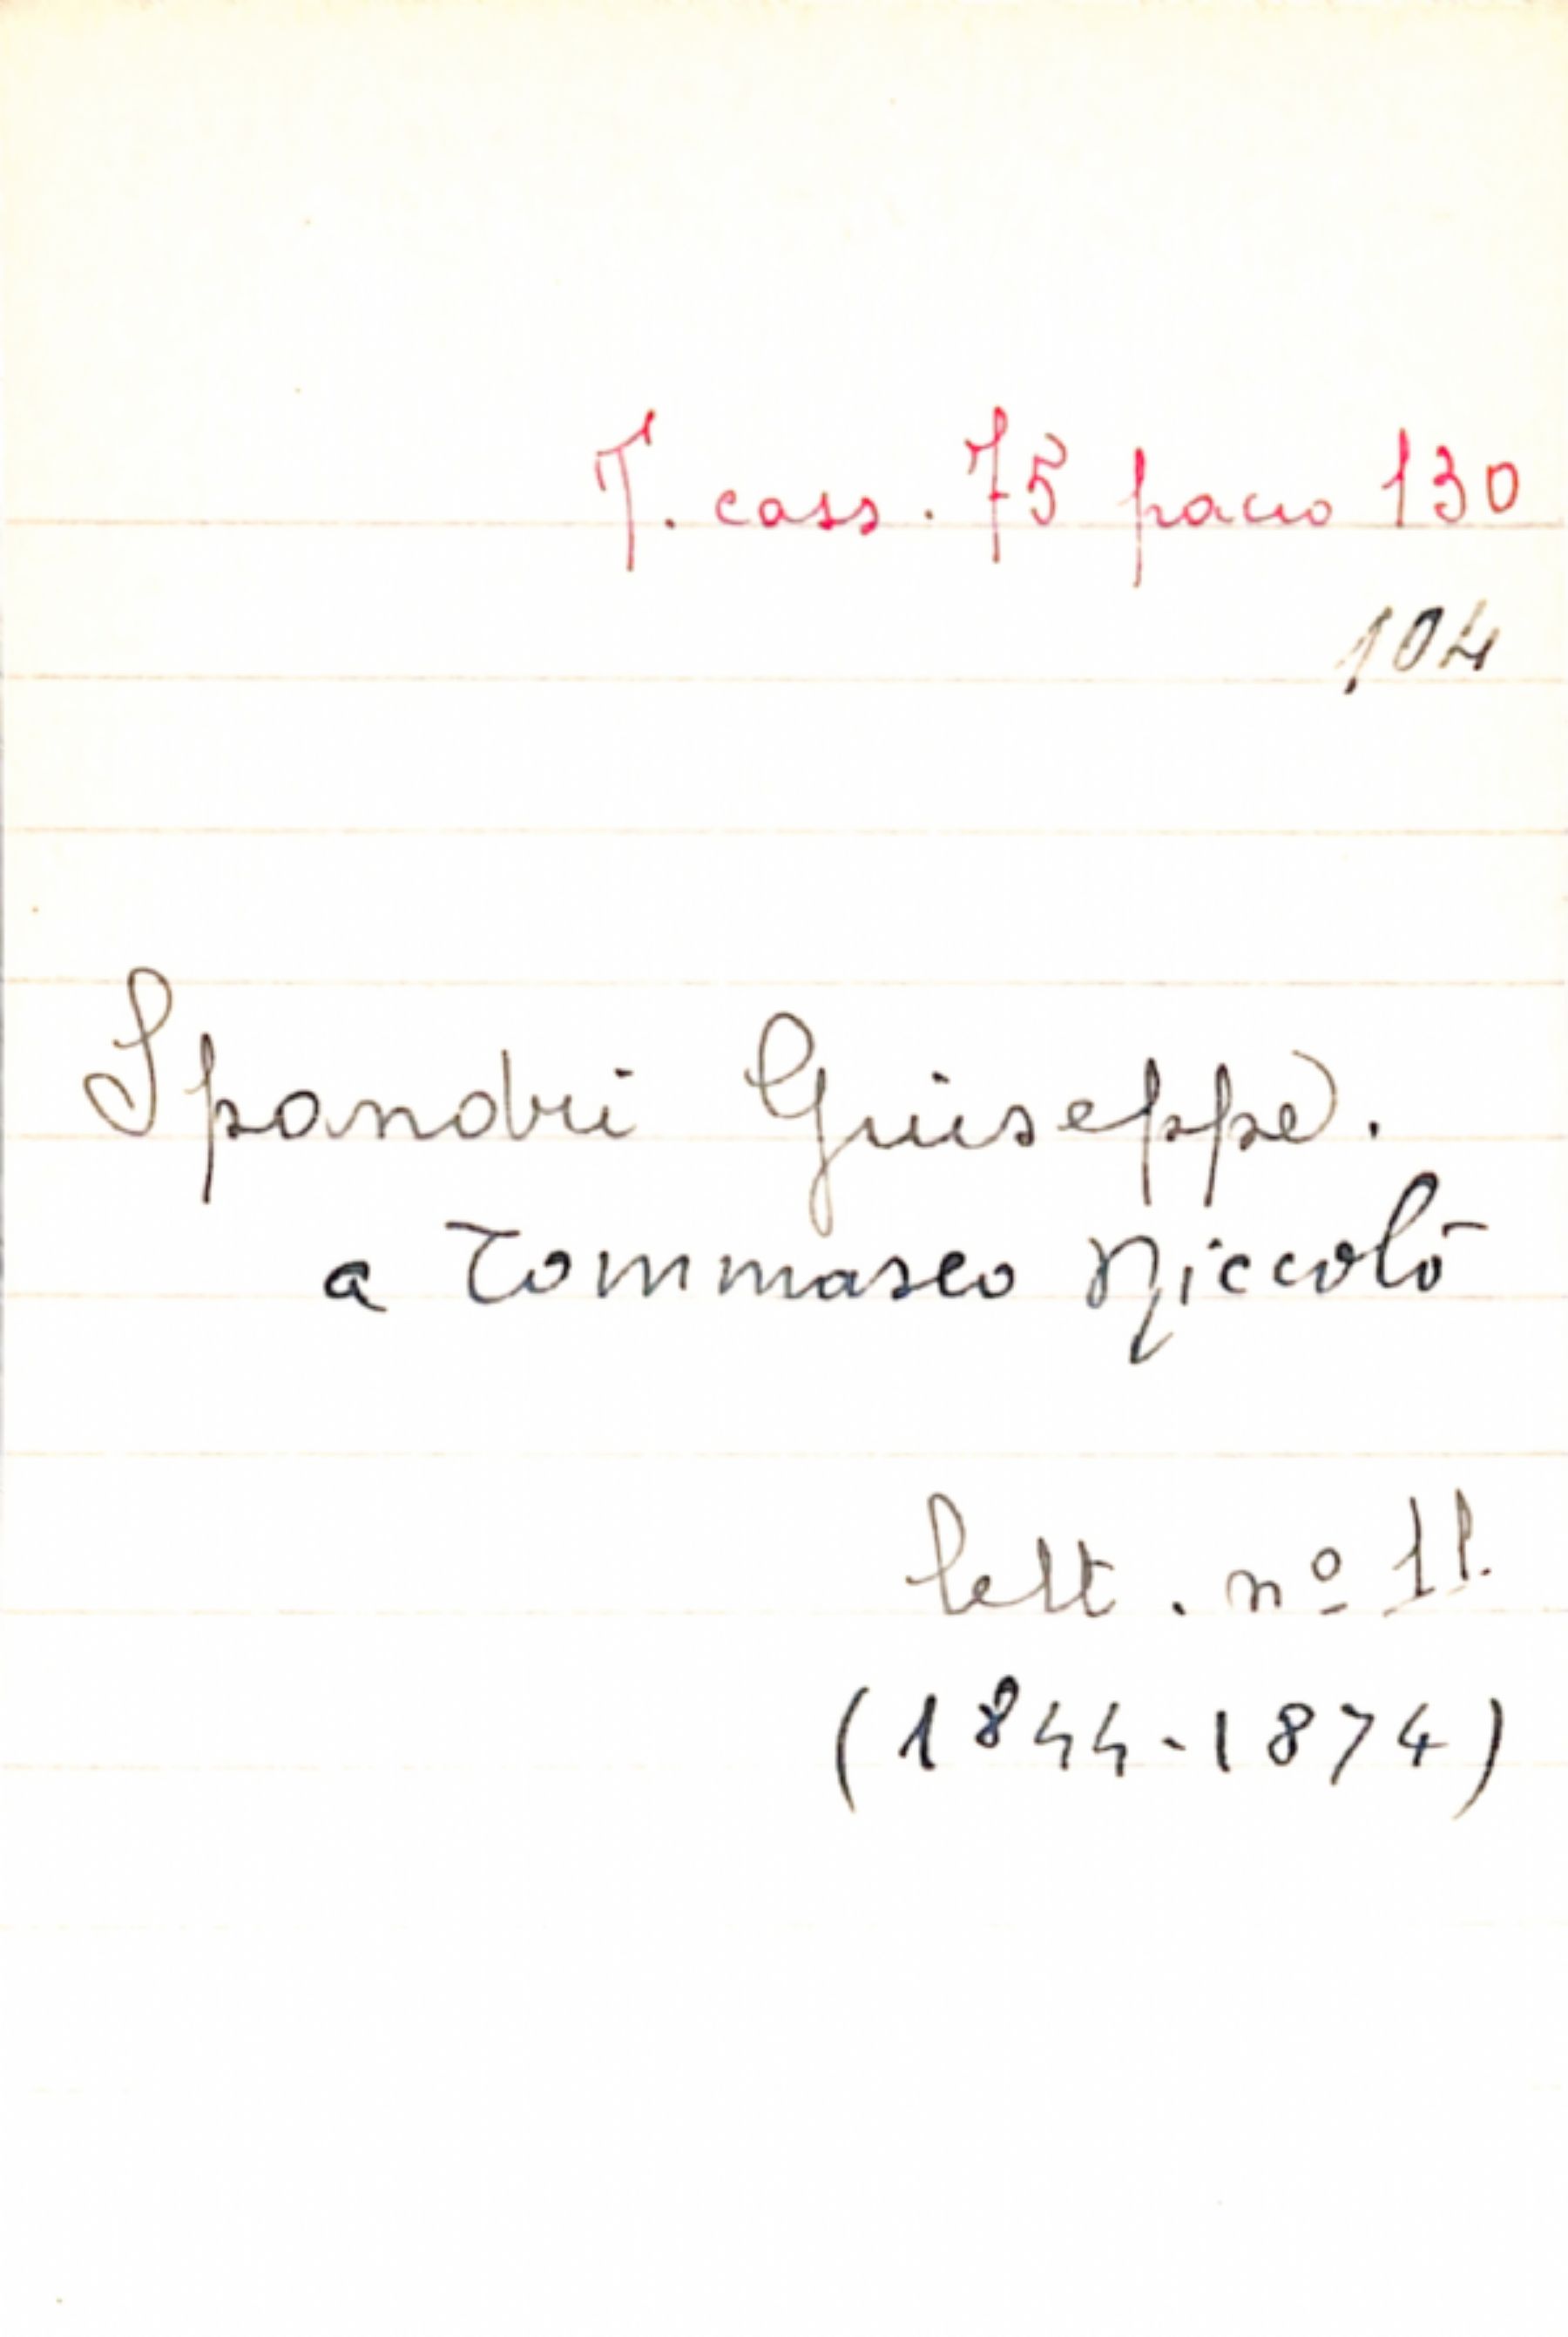 T. cass. 75 pacco 130
104
Spandri Giuseppe.
a Tommaseo Niccolò
lett. nº 11.
(1844-1874)